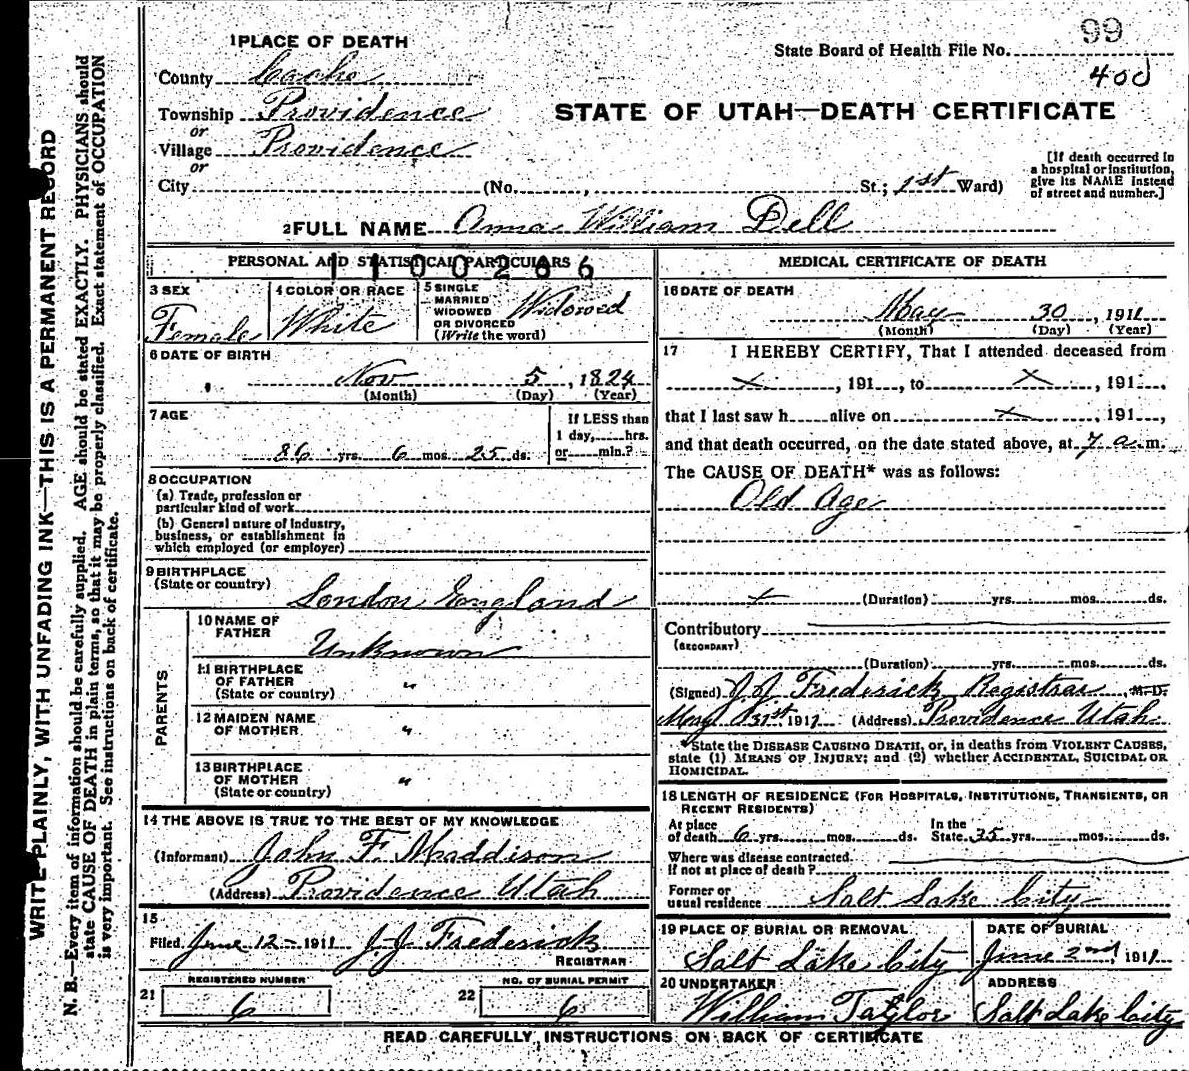 WRITE PLAINLY, WITH UNFADING INK—THIS IS A PERMANENT RECORD
N. B.—Every item of information should be carefully supplied. AGE should be stated EXACTLY. PHYSICIANS should
state CAUSE OF DEATH in plain terms, so that it may be properly classified. Exact statement of OCCUPATION
is very important. See instructions on back of certificate.
1 PLACE OF DEATH
County Cache
Township Providence
or
Village Providence
or
City (No. , St.; 1st Ward)
State Board of Health File No. 99
400
STATE OF UTAH—DEATH CERTIFICATE
[If death occurred in
a hospital or institution,
give its NAME instead
of street and number.]
2 FULL NAME Anna William Dell
PERSONAL AND STATISTICAL PARTICULARS
1100266
3 SEX
Female
4 COLOR OR RACE
White
5 SINGLE
MARRIED
WIDOWED
OR DIVORCED
(Write the word)
Widowed
6 DATE OF BIRTH
Nov 5, 1824
(Month) (Day) (Year)
7 AGE
86 yrs. 6 mos. 25 ds.
If LESS than
1 day, hrs.
or min.?
8 OCCUPATION
(a) Trade, profession or
particular kind of work
(b) General nature of industry,
business, or establishment in
which employed (or employer)
9 BIRTHPLACE
(State or country)
London England
PARENTS
10 NAME OF
FATHER
Unknown
11 BIRTHPLACE
OF FATHER
(State or country) "
12 MAIDEN NAME
OF MOTHER "
13 BIRTHPLACE
OF MOTHER
(State or country) "
14 THE ABOVE IS TRUE TO THE BEST OF MY KNOWLEDGE
(Informant) John F. Maddison
(Address) Providence Utah
15
Filed June 12 - 1911 J. J. Frederick
REGISTRAR
REGISTERED NUMBER
21 6
NO. OF BURIAL PERMIT
22 6
MEDICAL CERTIFICATE OF DEATH
16 DATE OF DEATH
May 30, 1911
(Month) (Day) (Year)
17 I HEREBY CERTIFY, That I attended deceased from
x, 191 , to x, 191 ,
that I last saw h alive on x, 191 ,
and that death occurred, on the date stated above, at 7 a.m.
The CAUSE OF DEATH* was as follows:
Old Age
x (Duration) yrs. mos. ds.
Contributory
(SECONDARY)
(Duration) yrs. mos. ds.
(Signed) J. J. Frederick Registrar, M. D.
May 31st 1911 (Address) Providence Utah
*State the DISEASE CAUSING DEATH, or, in deaths from VIOLENT CAUSES,
state (1) MEANS OF INJURY; and (2) whether ACCIDENTAL, SUICIDAL OR
HOMICIDAL.
18 LENGTH OF RESIDENCE (FOR HOSPITALS, INSTITUTIONS, TRANSIENTS, OR
RECENT RESIDENTS)
At place In the
of death 6 yrs. mos. ds. State 35 yrs. mos. ds.
Where was disease contracted
if not at place of death?
Former or
usual residence Salt Lake City
19 PLACE OF BURIAL OR REMOVAL
Salt Lake City
DATE OF BURIAL
June 2nd, 1911
20 UNDERTAKER
William Taylor
ADDRESS
Salt Lake City
READ CAREFULLY INSTRUCTIONS ON BACK OF CERTIFICATE